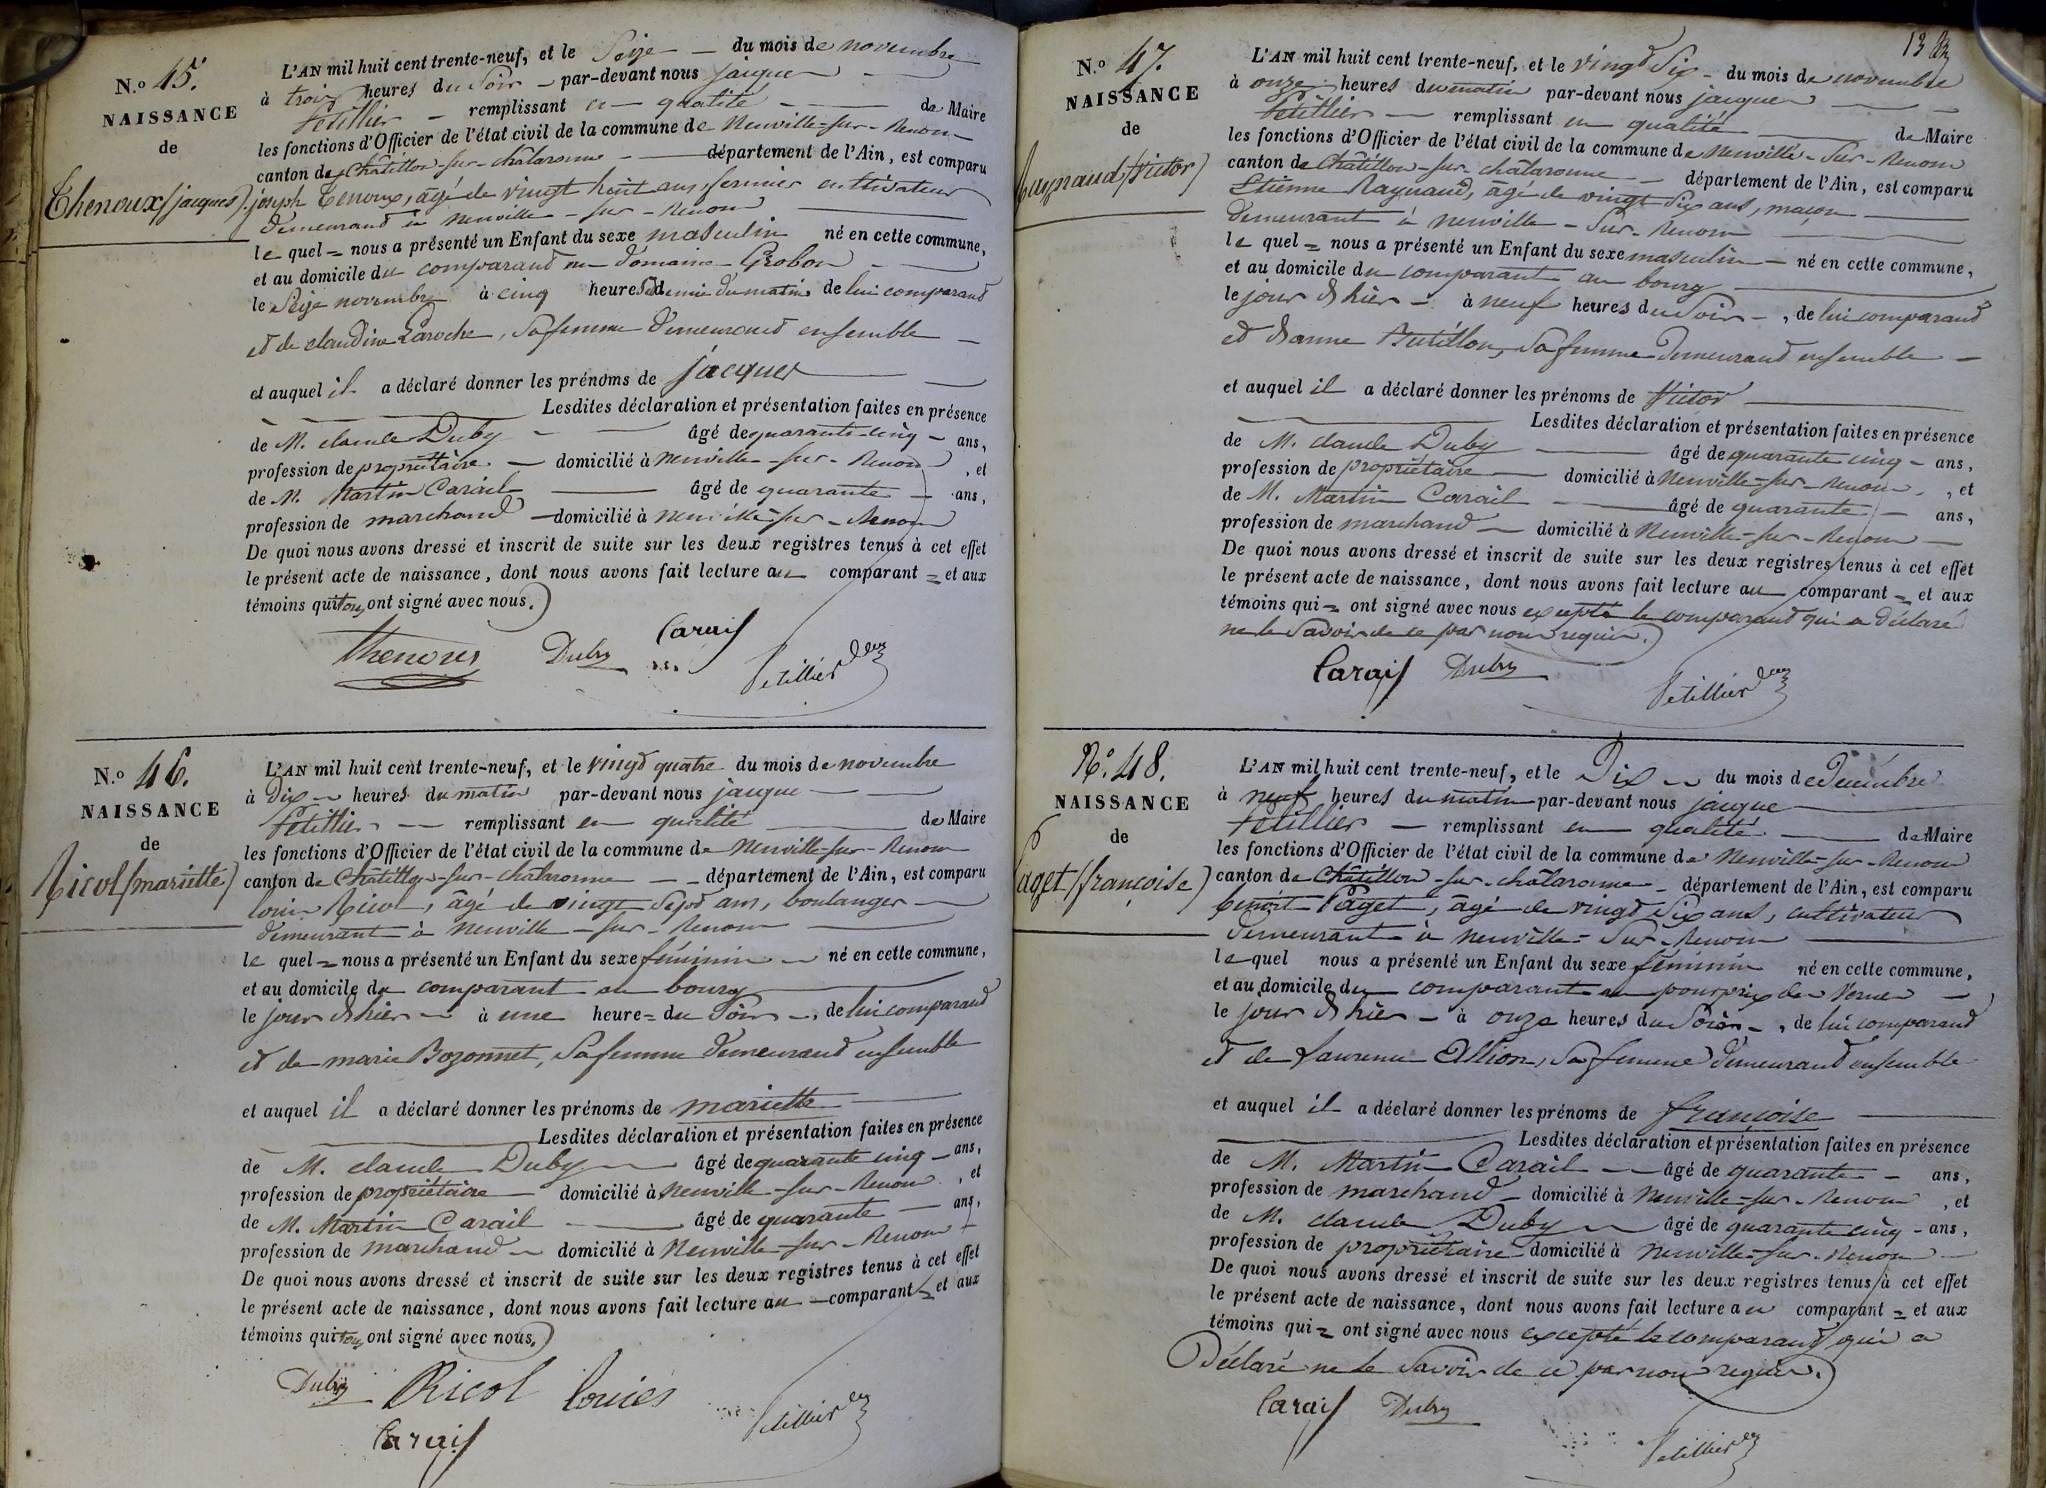 N.º 45.
NAISSANCE
de
Thenoux (jacques)
L'AN mil huit cent trente-neuf, et le Seize — du mois de novembre
à trois heures du Soir — par-devant nous jacques —
Petillier — remplissant en qualité — de Maire
les fonctions d'Officier de l'état civil de la commune de Neuville-sur-Renom
canton de Châtillon-sur-châlaronne — département de l'Ain, est comparu
joseph Tenoux, âgé de vingt huit ans fermier cultivateur
demeurand à neuville-sur-Renom
le quel = nous a présenté un Enfant du sexe masculin né en cette commune,
et au domicile du comparand au domaine Grobon —
le Seize novembre à cinq heures & demie du matin de lui comparand
et de claudine Laroche, sa femme demeurand ensemble —
et auquel il a déclaré donner les prénoms de jacques —
Lesdites déclaration et présentation faites en présence
de M. claude Duby — âgé de quarante-cinq — ans,
profession de propriétaire — domicilié à neuville-sur-Renom, et
de M. Martin Carail — âgé de quarante — ans,
profession de marchand — domicilié à neuville-sur-Renom
De quoi nous avons dressé et inscrit de suite sur les deux registres tenus à cet effet
le présent acte de naissance, dont nous avons fait lecture au comparant = et aux
témoins qui tous ont signé avec nous.
Thenoux Duby Carail Petillier
N.º 46.
NAISSANCE
de
Ricol (mariette)
L'AN mil huit cent trente-neuf, et le vingd quatre du mois de novembre
à Dix — heures du matin par-devant nous jacque —
Petillier — remplissant en qualité — de Maire
les fonctions d'Officier de l'état civil de la commune de Neuville-sur-Renom
canton de Châtillon-sur-châlaronne — département de l'Ain, est comparu
louis Ricol, âgé de vingt Sept ans, boulanger —
demeurant à neuville-sur-Renom —
le quel = nous a présenté un Enfant du sexe féminin — né en cette commune,
et au domicile du comparant au bourg
le jour d'hier — à une heure = du Soir —, de lui comparand
et de marie Bozonnet, sa femme demeurand ensemble
et auquel il a déclaré donner les prénoms de mariette —
Lesdites déclaration et présentation faites en présence
de M. claude Duby — âgé de quarante cinq — ans,
profession de propriétaire — domicilié à neuville-sur-Renom, et
de M. Martin Carail — âgé de quarante — ans,
profession de marchand — domicilié à Neuville-sur-Renom
De quoi nous avons dressé et inscrit de suite sur les deux registres tenus à cet effet
le présent acte de naissance, dont nous avons fait lecture au — comparant = et aux
témoins qui tous ont signé avec nous.
Duby Ricol louies Petillier
Carail
13
N.º 47.
NAISSANCE
de
Raynaud (Victor)
L'AN mil huit cent trente-neuf, et le vingd Six — du mois de novembre
à onze heures du matin par-devant nous jacques —
Petillier — remplissant en qualité — de Maire
les fonctions d'Officier de l'état civil de la commune de neuville-Sur-Renom
canton de Châtillon-sur-châlaronne — département de l'Ain, est comparu
Etienne Raynaud, âgé de vingt Six ans, maçon —
demeurant à neuville-Sur-Renom —
le quel = nous a présenté un Enfant du sexe masculin — né en cette commune,
et au domicile du comparant au bourg —
le jour d'hier — à neuf heures du Soir —, de lui comparand
et d'anne Butillon, Sa femme demeurand ensemble —
et auquel il a déclaré donner les prénoms de Victor —
Lesdites déclaration et présentation faites en présence
de M. claude Duby — âgé de quarante cinq — ans,
profession de propriétaire — domicilié à Neuville-sur-Renom, et
de M. Martin Carail — âgé de quarante — ans,
profession de marchand — domicilié à Neuville-sur-Renom —
De quoi nous avons dressé et inscrit de suite sur les deux registres tenus à cet effet
le présent acte de naissance, dont nous avons fait lecture au comparant = et aux
témoins qui = ont signé avec nous excepté le comparand qui a déclaré
ne le Savoir de ce par nous requis.
Carail Duby Petillier
N.º 48.
NAISSANCE
de
Paget (françoise)
L'AN mil huit cent trente-neuf, et le Dix — du mois de Décembre
à neuf heures du matin par-devant nous jacque
Petillier — remplissant en qualité — de Maire
les fonctions d'Officier de l'état civil de la commune de Neuville-sur-Renom
canton de Châtillon-sur-châlaronne — département de l'Ain, est comparu
benoit Paget, âgé de vingd Six ans, cultivateur
demeurant à neuville-Sur-Renom —
le quel nous a présenté un Enfant du sexe féminin né en cette commune,
et au domicile du comparant au pourprix des Vernes —
le jour d'hier — à onze heures du Soir —, de lui comparand
et de laurence Allion, Sa femme demeurand ensemble
et auquel il a déclaré donner les prénoms de françoise —
Lesdites déclaration et présentation faites en présence
de M. Martin Carail — âgé de quarante — ans,
profession de marchand — domicilié à Neuville-sur-Renom, et
de M. claude Duby — âgé de quarante cinq — ans,
profession de propriétaire domicilié à neuville-sur-Renom —
De quoi nous avons dressé et inscrit de suite sur les deux registres tenus à cet effet
le présent acte de naissance, dont nous avons fait lecture au comparant = et aux
témoins qui = ont signé avec nous excepté le comparand qui a
Déclaré ne le Savoir de ce par nous requis.
Carail Duby Petillier